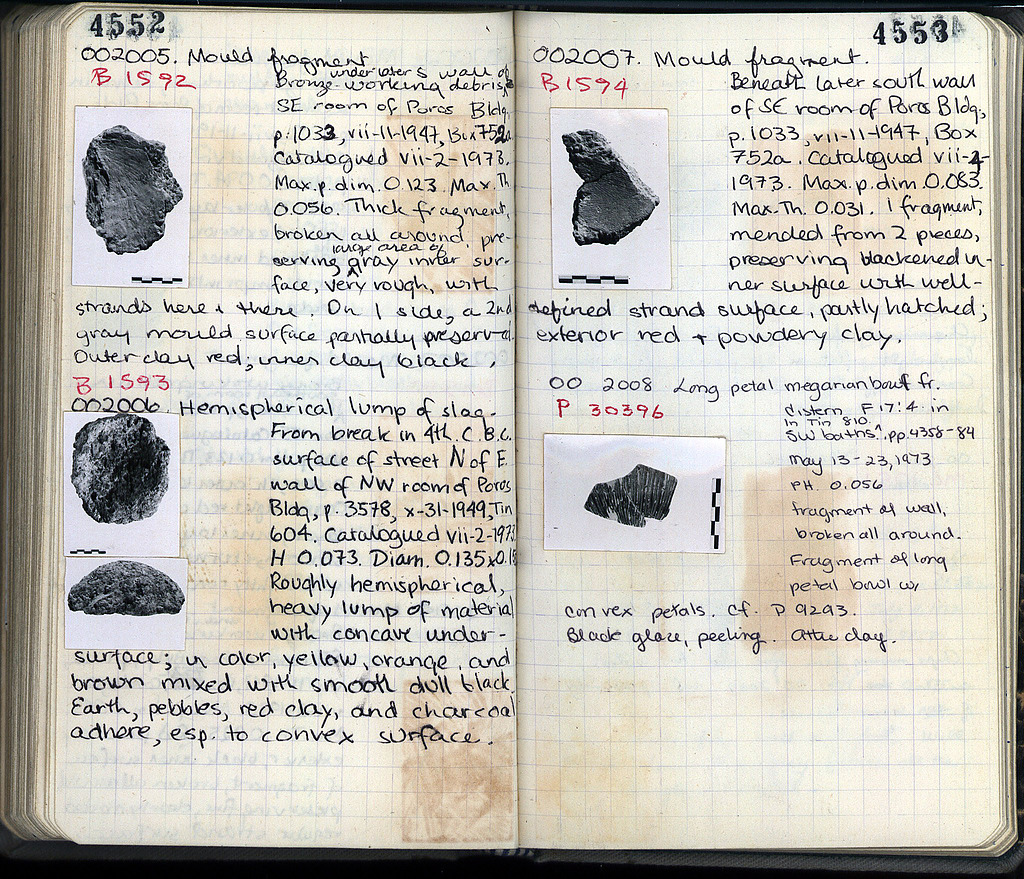 4552
002005. Mould fragment
B 1592
under later S wall of
Bronze-working debris,
SE room of Poros Bldg.
p. 1033, vii-11-1947, Box 752a
Catalogued vii-2-1973.
Max. p. dim. 0.123. Max. Th
0.056. Thick fragment,
broken all around, pre-
large area of
serving gray inner sur-
face, very rough, with
strands here & there. On 1 side, a 2nd
gray mould surface partially preserved.
Outer clay red; inner clay black.
B 1593
002006. Hemispherical lump of slag.
From break in 4th. C. B.C.
surface of street N of E.
wall of NW room of Poros
Bldg, p. 3578, x-31-1949, Tin
604. Catalogued vii-2-1973
H 0.073. Diam. 0.135x
Roughly hemispherical,
heavy lump of material
with concave under-
surface; in color, yellow, orange, and
brown mixed with smooth dull black.
Earth, pebbles, red clay, and charcoal
adhere, esp. to convex surface.
4553
002007. Mould fragment.
B 1594
Beneath later south wall
of SE room of Poros Bldg,
p. 1033, vii-11-1947, Box
752a. Catalogued vii-2-
1973. Max. p. dim. 0.083.
Max. Th. 0.031. 1 fragment,
mended from 2 pieces,
preserving blackened in-
ner surface with well-
defined strand surface, partly hatched;
exterior red + powdery clay.
00 2008 Long petal megarian bowl fr.
P 30396
cistern F 17:4 in
in Tin 810.
SW baths, pp. 4358-84
May 13-23, 1973
PH. 0.056
fragment of wall,
broken all around.
Fragment of long
petal bowl w/
convex petals. Cf. P 9293.
Black glaze, peeling. Attic clay.